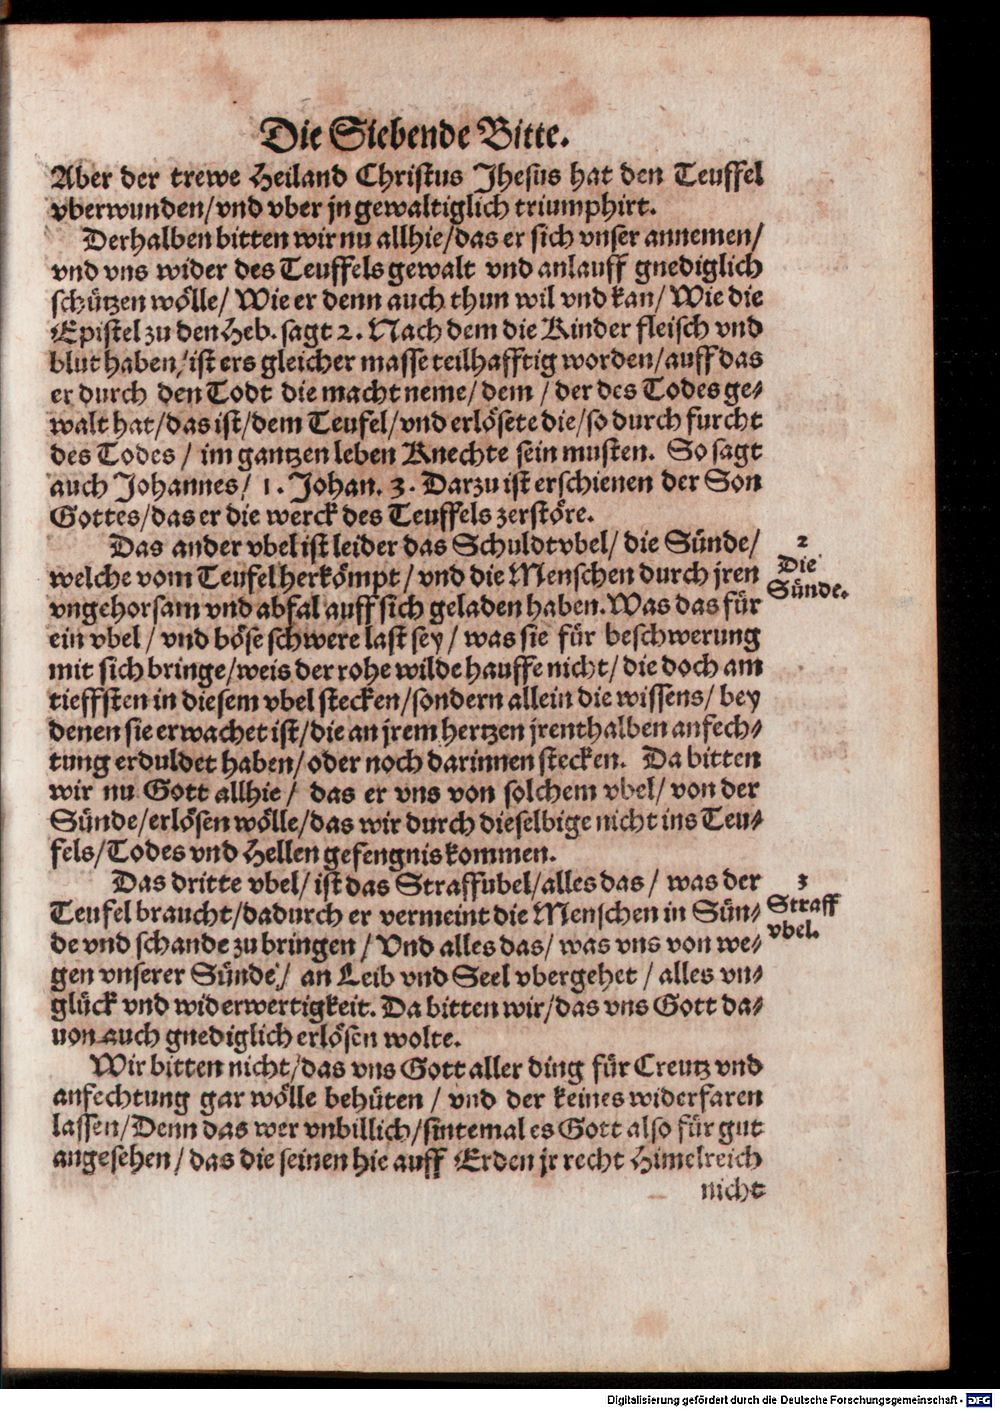 Die Siebende Bitte.
Aber der trewe Heiland Christus Jhesus hat den Teuffel
vberwunden/vnd vber jn gewaltiglich triumphirt.
Derhalben bitten wir nu allhie/das er sich vnser annemen/
vnd vns wider des Teuffels gewalt vnd anlauff gnediglich
schützen wölle/ Wie er denn auch thun wil vnd kan/ Wie die
Epistel zu den Heb. sagt 2. Nach dem die Kinder fleisch vnd
blut haben/ist ers gleicher masse teilhafftig worden/auff das
er durch den Todt die macht neme/dem / der des Todes ge-
walt hat/das ist/dem Teufel/vnd erlösete die/so durch furcht
des Todes / im gantzen leben Knechte sein musten. So sagt
auch Johannes/ 1. Johan. 3. Darzu ist erschienen der Son
Gottes/das er die werck des Teuffels zerstöre.
Das ander vbel ist leider das Schuldtvbel/ die Sünde/
welche vom Teufel herkömpt/vnd die Menschen durch jren
vngehorsam vnd abfal auff sich geladen haben.Was das für
ein vbel / vnd böse schwere last sey / was sie für beschwerung
mit sich bringe/weis der rohe wilde hauffe nicht/die doch am
tieffsten in diesem vbel stecken/sondern allein die wissens/ bey
denen sie erwachet ist/die an jrem hertzen jrenthalben anfech-
tung erduldet haben/oder noch darinnen stecken. Da bitten
wir nu Gott allhie / das er vns von solchem vbel/ von der
Sünde/erlösen wölle/das wir durch dieselbige nicht ins Teu-
fels/Todes vnd Hellen gefengnis kommen.
Das dritte vbel/ist das Straffubel/alles das/ was der
Teufel braucht/dadurch er vermeint die Menschen in Sün-
de vnd schande zu bringen / Vnd alles das/ was vns von we-
gen vnserer Sünde / an Leib vnd Seel vbergehet / alles vn-
glück vnd widerwertigkeit. Da bitten wir/das vns Gott da-
uon auch gnediglich erlösen wolte.
Wir bitten nicht/das vns Gott aller ding für Creutz vnd
anfechtung gar wölle behüten / vnd der keines widerfaren
lassen/Denn das wer vnbillich/sintemal es Gott also für gut
angesehen/das die seinen hie auff Erden jr recht Himelreich
nicht
2
Die
Sünde.
3
Straff
vbel.
Digitalisierung gefördert durch die Deutsche Forschungsgemeinschaft - DFG